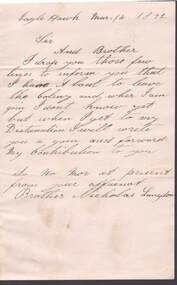 Eagle Hawk Mar. 12 1892
Sir
And Brother
I drop you those few
lines to inform you that
I have A bout to leave
the and wher I am
going I dont know yet
but when I get to my
Destination I will write
you a gain and forward
My Contribution to you
So No Mor at present
from your affianct
Brother Nicholas